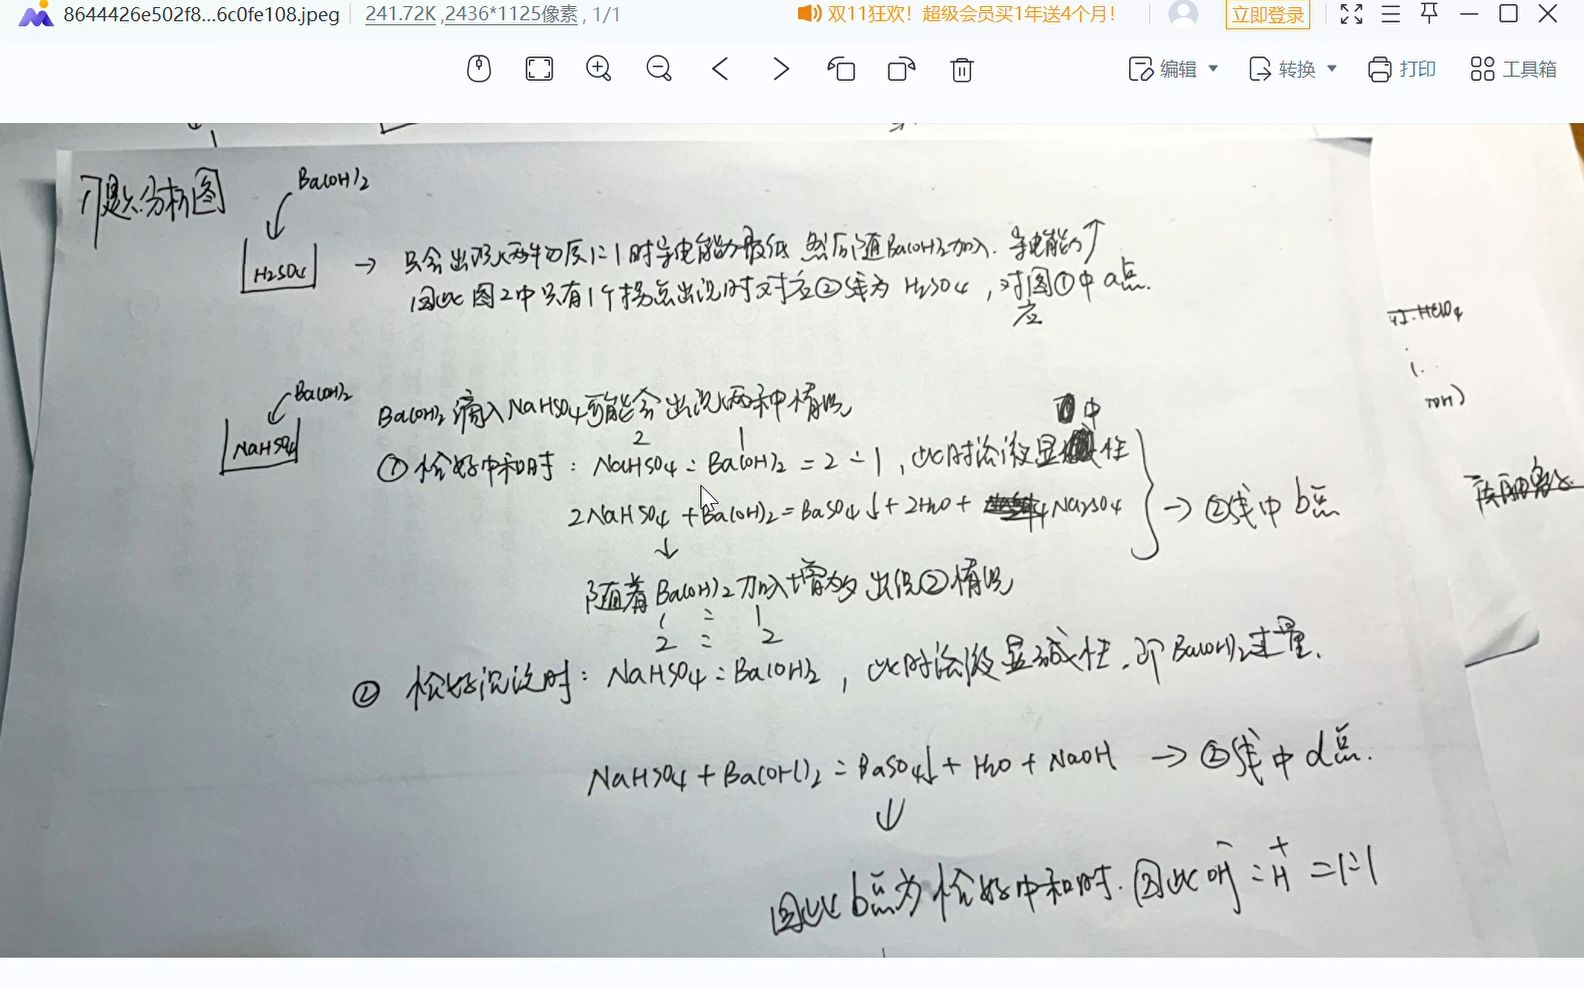 8644426e502f8...6c0fe108.jpeg 241.72K ,2436*1125像素 , 1/1 双11狂欢！超级会员买1年送4个月！ 立即登录
编辑 转换 打印 工具箱
习题分析图
Ba(OH)2
H2SO4
→ 只会出现两物质1:1时导电能力最低 然后随Ba(OH)2加入. 导电能力↑
因此图2中只有1个拐点出现时对应②线为 H2SO4 , 对应图①中a点.
Ba(OH)2
NaHSO4
Ba(OH)2 滴入NaHSO4可能会出现两种情况
中
2 1
① 恰好中和时: NaHSO4 : Ba(OH)2 = 2 : 1 , 此时溶液显性
2NaHSO4 + Ba(OH)2 = BaSO4↓ + 2H2O + Na2SO4
→ ②线中b点
↓
随着Ba(OH)2加入增多出现②情况
1 : 1
2 : 2
② 恰好沉淀时: NaHSO4 : Ba(OH)2 , 此时溶液显碱性, 即Ba(OH)2过量.
NaHSO4 + Ba(OH)2 = BaSO4↓ + H2O + NaOH → ②线中d点.
↓
因此b点为恰好中和时. 因此OH⁻ : H⁺ = 1:1